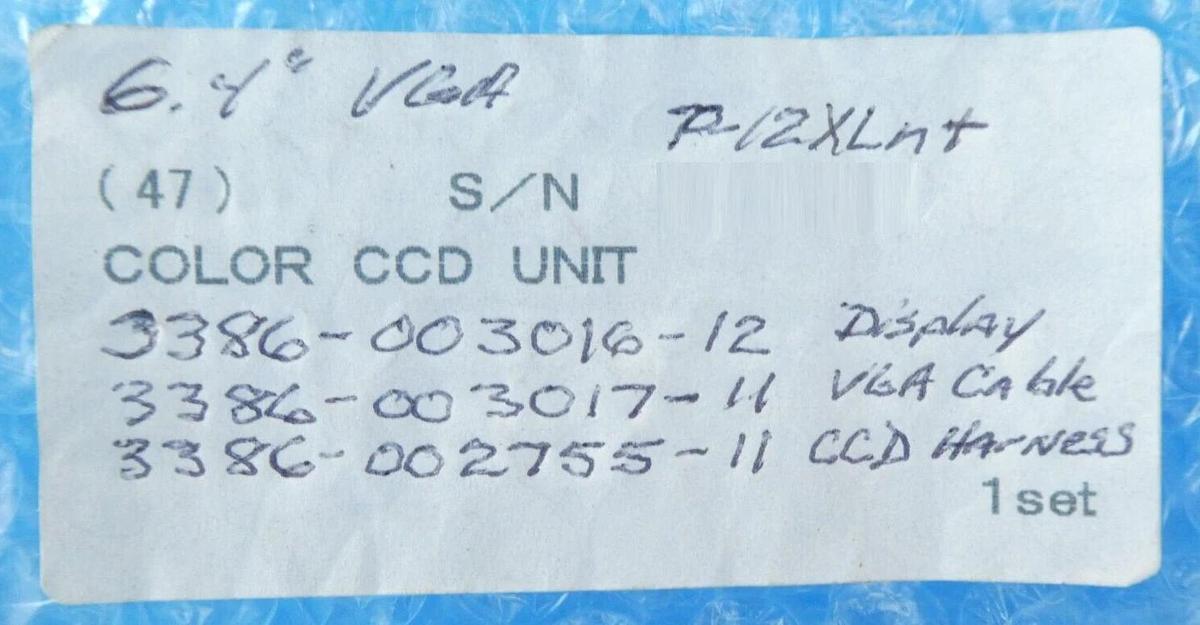 6.4" VGA
P-12XLnt
(47) S/N
COLOR CCD UNIT
3386-003016-12 Display
3386-003017-11 VGA Cable
3386-002755-11 CCD Harness
1set